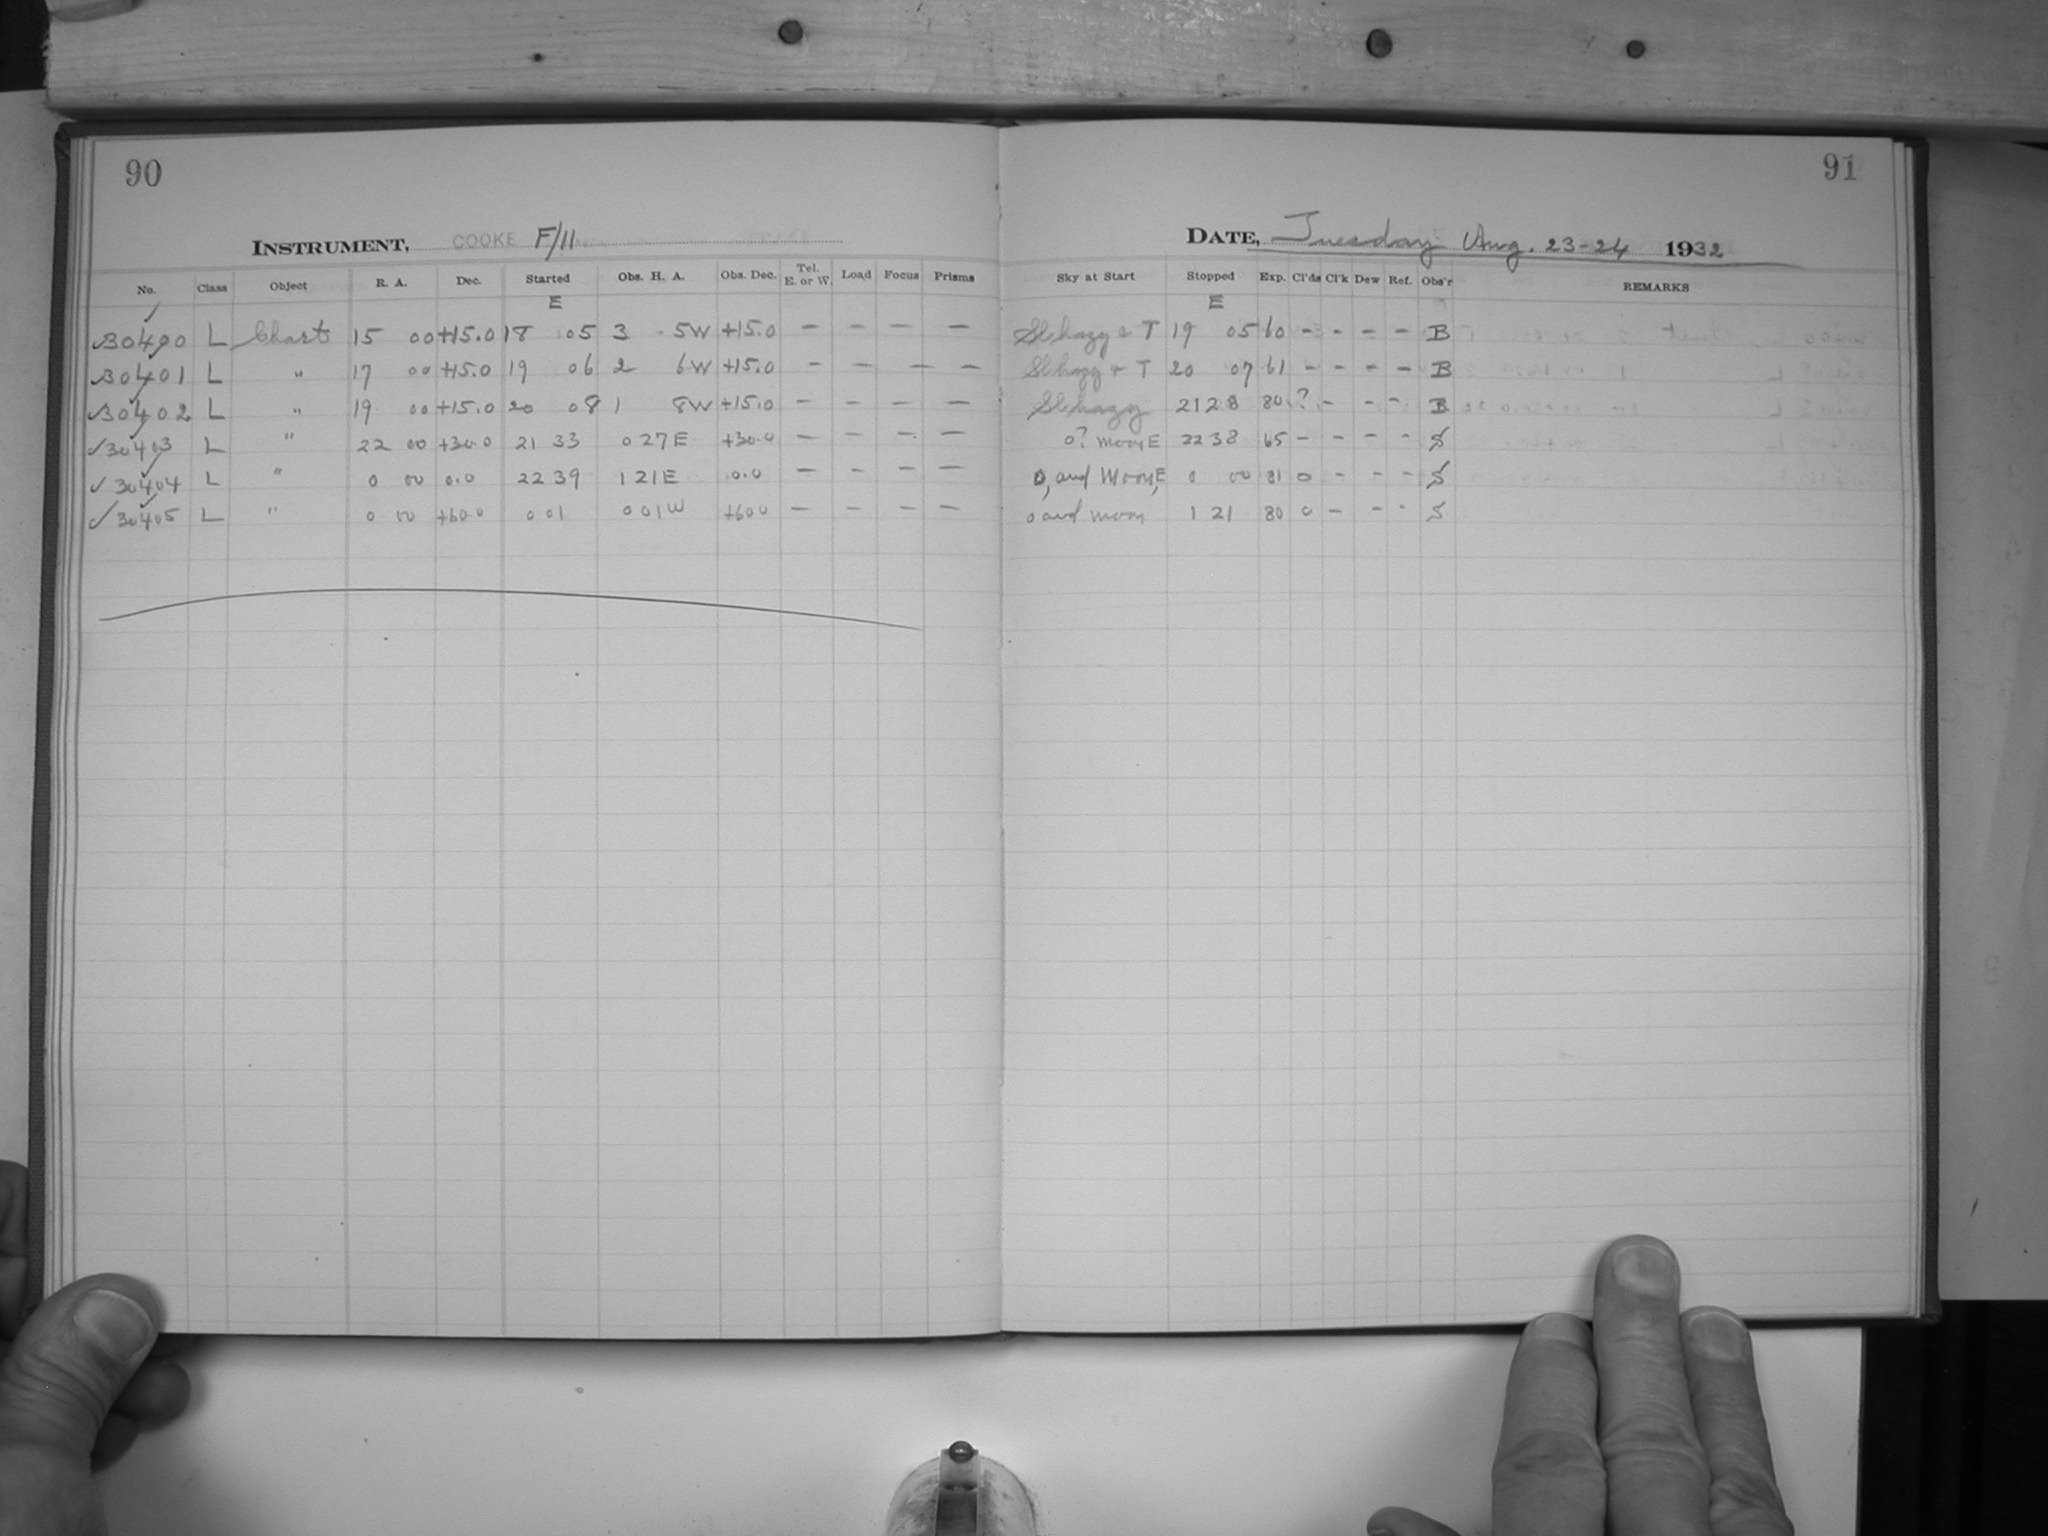 90
INSTRUMENT, COOKE F/11
No. Class Object R. A. Dec. Started Obs. H. A. Obs. Dec. Tel. E. or W. Load Focus Prisms
E
30400 L Chart 15 00 +15.0 18 05 3 5W +15.0 — — — —
30401 L " 17 00 +15.0 19 06 2 6W +15.0 — — — —
30402 L " 19 00 +15.0 20 08 1 8W +15.0 — — — —
30403 L " 22 00 +30.0 21 33 0 27E +30.0 — — — —
30404 L " 0 00 0.0 22 39 1 21E 0.0 — — — —
30405 L " 0 00 +60.0 0 01 0 01W +60.0 — — — —
91
DATE, Tuesday Aug. 23-24 1932
Sky at Start Stopped Exp. Cl'ds Cl'k Dew Ref. Obs'r REMARKS
E
Sl hazy & T 19 05 60 - - - - B
Sl hazy + T 20 07 61 - - - - B
Sl hazy 21 28 80 ? - - - B
0? moon, E 22 38 65 - - - - S
0, and Moon, E 0 00 81 0 - - - S
0 and moon 1 21 80 0 - - - S